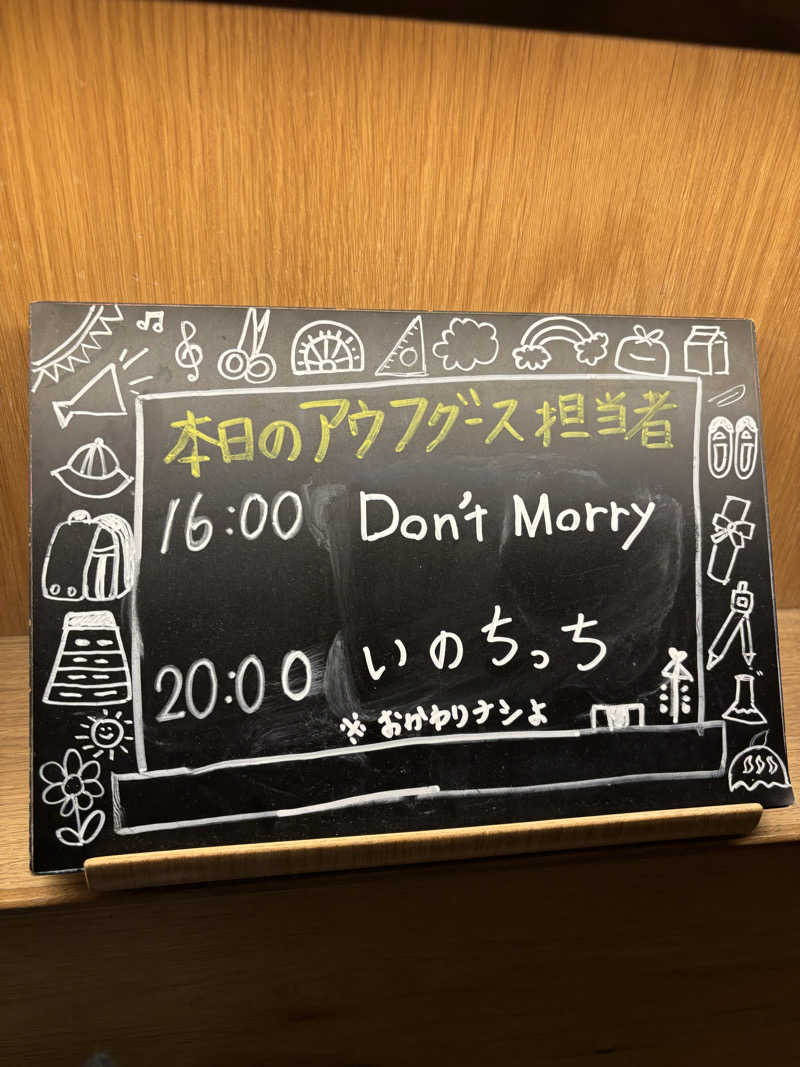 本日のアウフグース担当者
16:00 Don't Morry
20:00 いのちっち
※おかわりナシよ